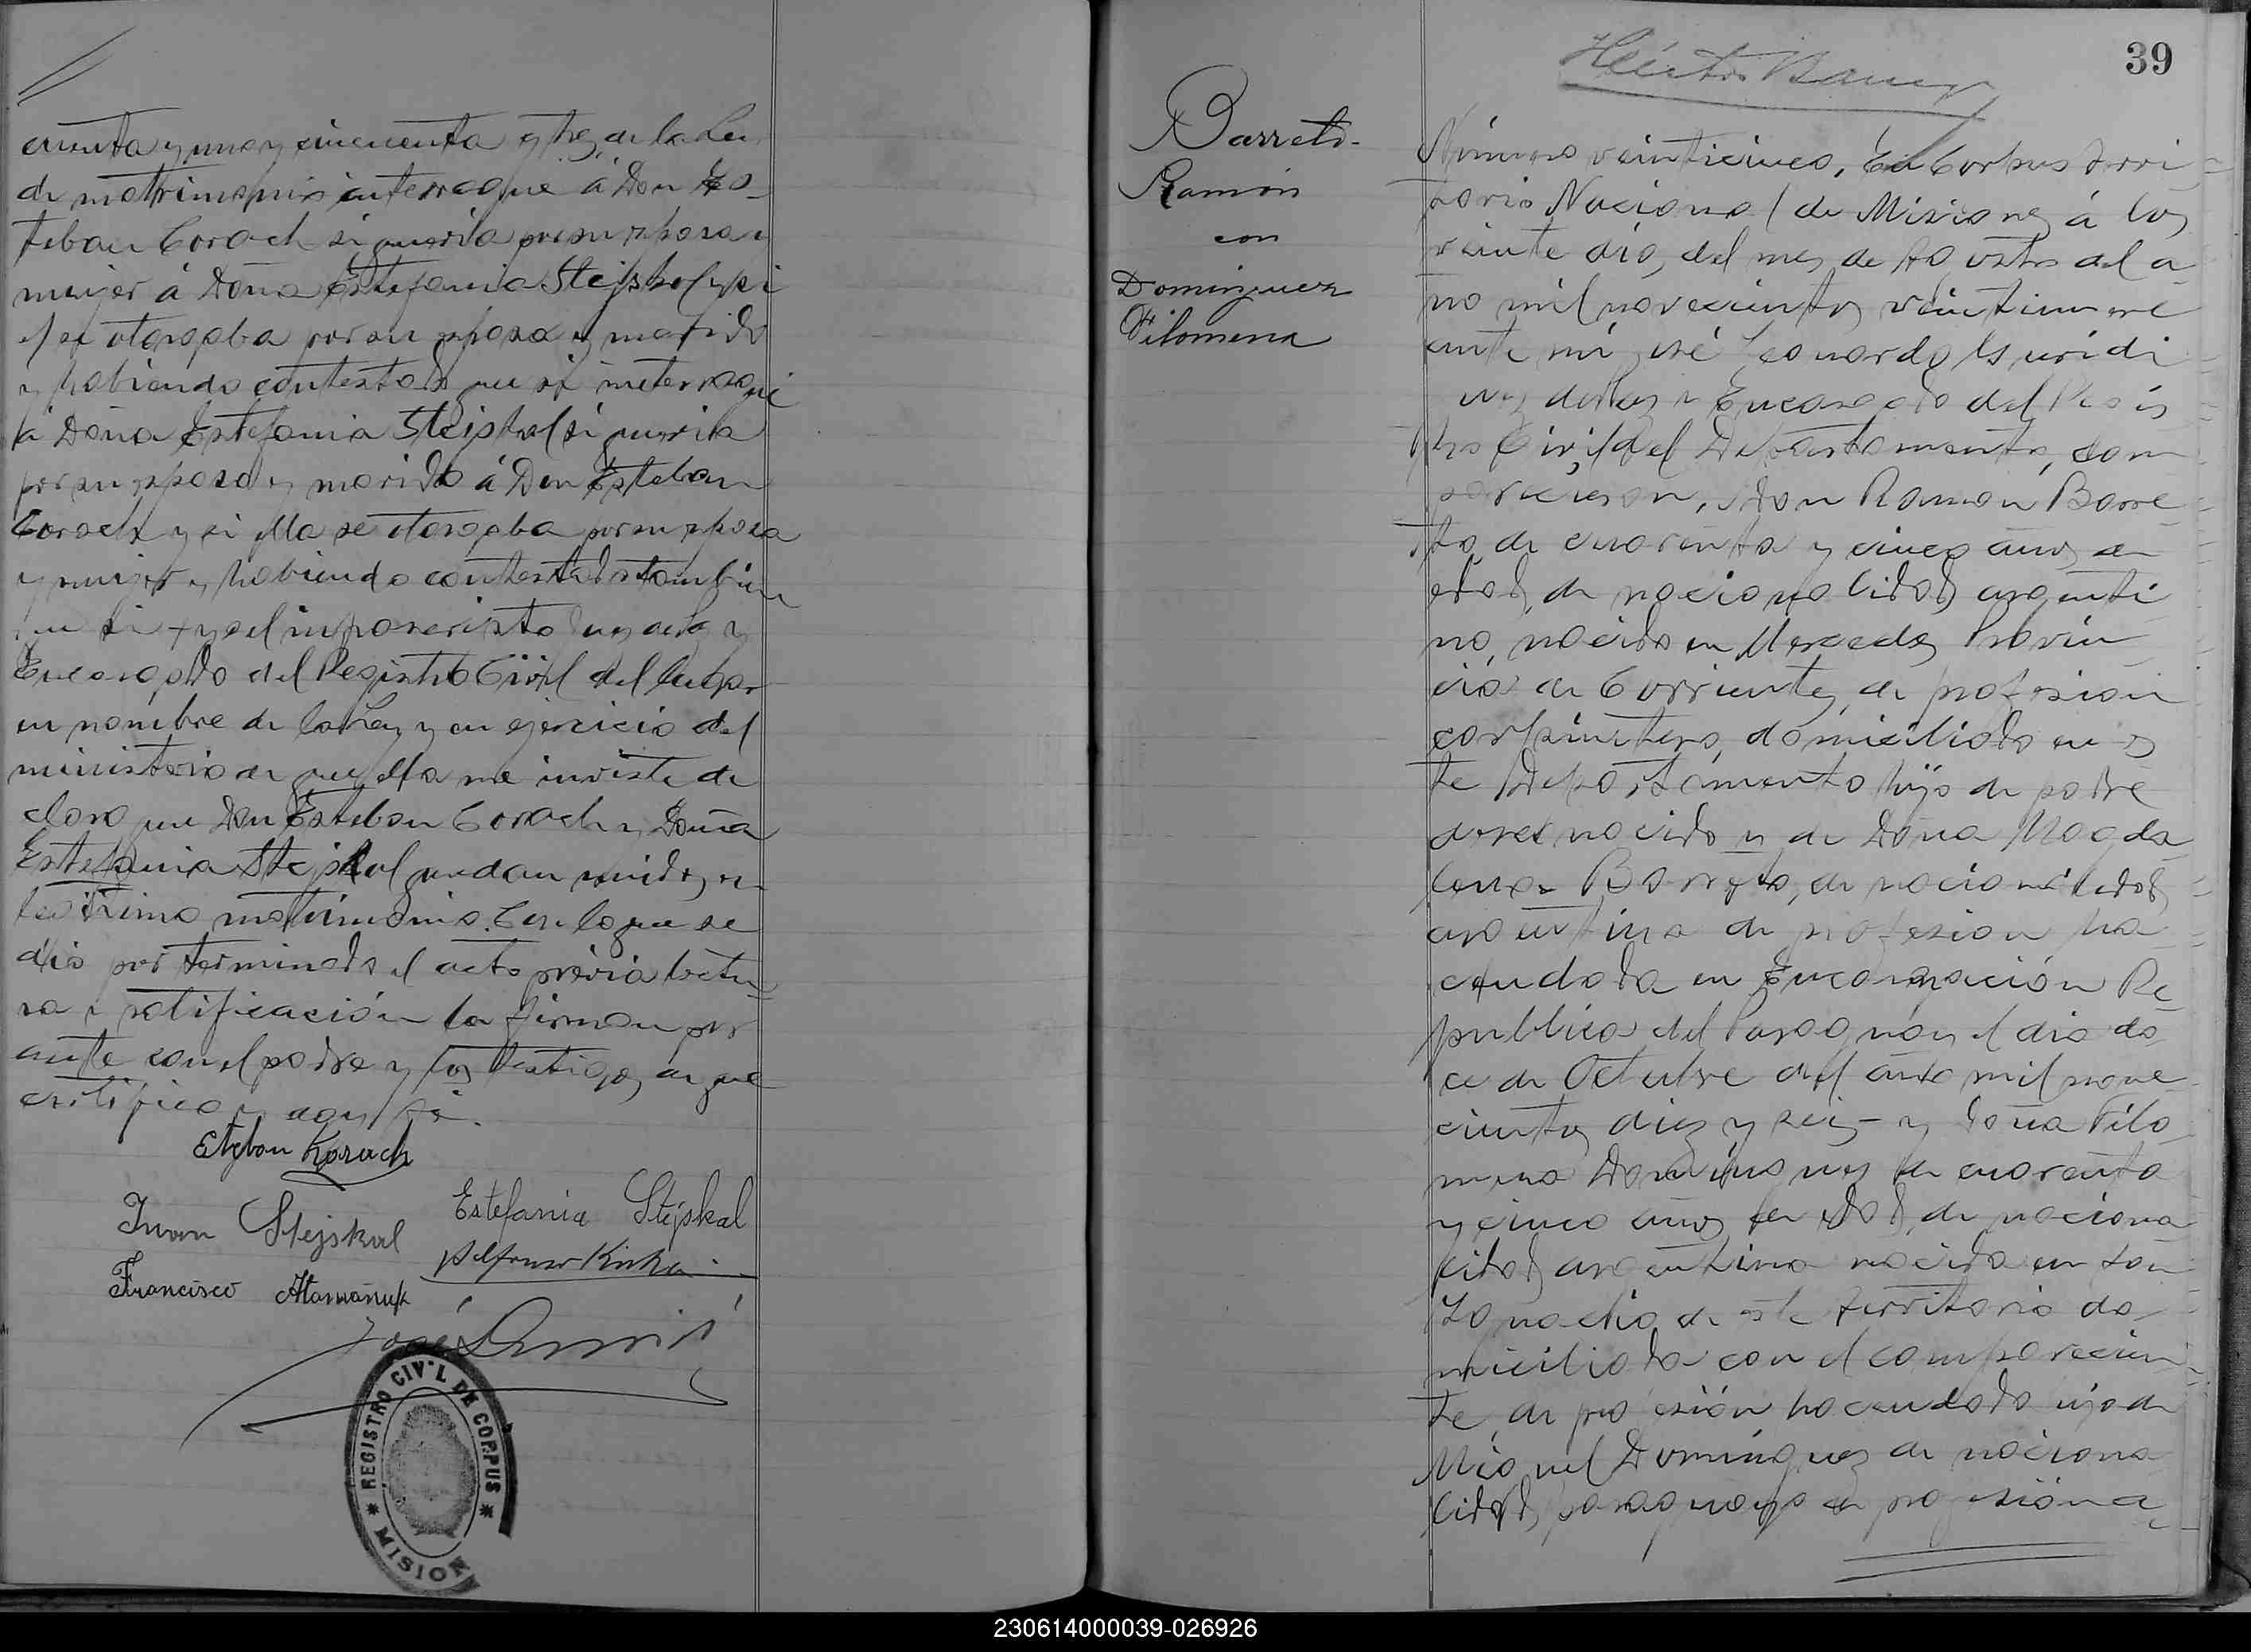 cuenta y uno y cincuenta y tres, de la Ley
de matrimonio interrogué á Don Es-
teban Corach si queria por su esposa y
mujer á Doña Estefania Stejskal y si
el se otorgaba por su esposo y marido
y habiendo contestado que si interrogué
á Doña Estefania Stejskal si queria
por su esposo y marido á Don Esteban
Corach y si ella se otorgaba por su esposa
y mujer y habiendo contestado tambien
que si yo el infrascripto Juez de Paz y
Encargado del Registro Civil del lugar
en nombre de la Ley y en ejercicio del
ministerio de que ella me inviste de
claro que Don Esteban Corach y Doña
Estefania Stejskal quedan unidos en
lejitimo matrimonio. Con lo que se
dió por terminado el acto prévia lectu-
ra y ratificación la firman por
ante con el padre y los testigos, de que
certifico y doy fé.
Esteban Korach
Juan Stejskal
Estefania Stejskal
Francisco Atamañuk
José
REGISTRO CIVIL DE CORPUS
MISION
39
Barreto-
Ramón
con
Dominguez
Filomena
Número veinticinco, En Corpus Terri
torio Nacional de Misiones á los
veinte dias, del mes de Agosto del a
ño mil novecientos veintinueve
ante mi José Leonardo
Juez de Paz y Encargado del Regis
tro Civil del Departamento, com
parecieron, Don Ramon Barre
to, de cuarenta y cinco años de
edad, de nacionalidad argenti
no, nacido en Mercedes Provin
cia de Corrientes, de profesion
carpintero, domiciliado en es
te Departamento hijo de padre
desconocido y de Doña Magda
lena Barreto, de nacionalidad
argentina de profesion ha
cendada en Encarnación Re
publica del Paraguay el dia do
ce de Octubre del año mil nove
cientos diez y seis - y Doña Filo
mena Dominguez de cuarenta
y cinco años de edad, de naciona
lidad argentina nacida en San
Ignacio de este territorio do
miciliada con el comparecien
te, de profesión hacendada hija de
Miguel Dominguez de naciona
lidad paraguayo de profesión a
230614000039-026926